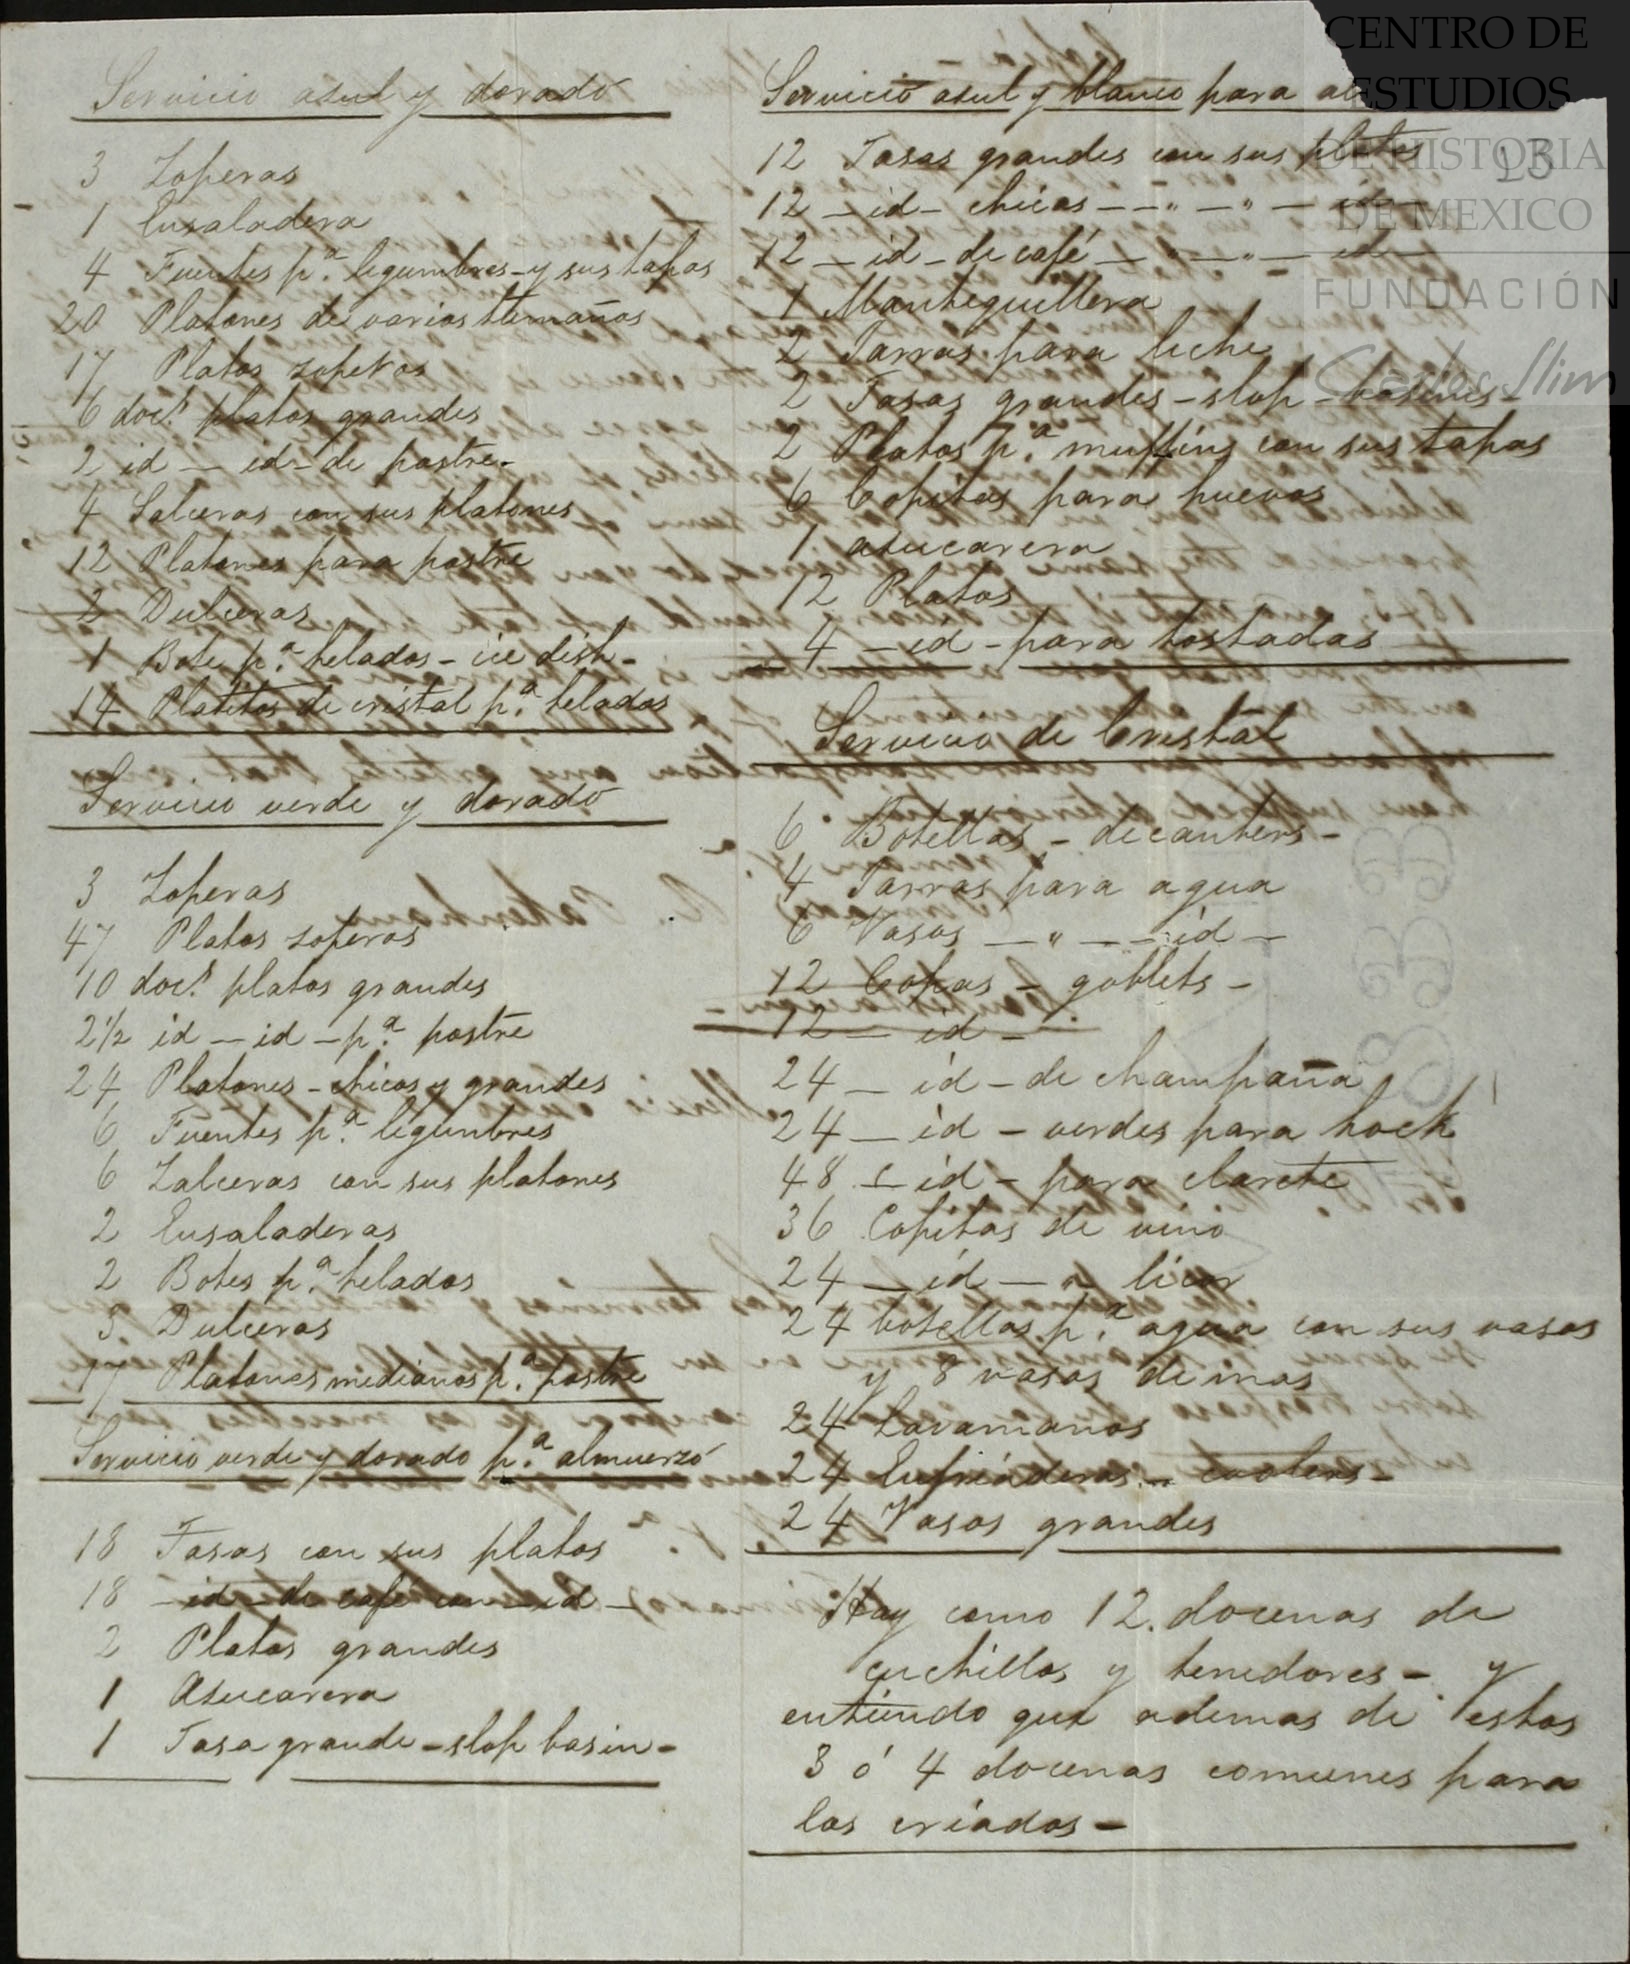 Servicio azul y dorado
3 Zoperas
1 Ensaladera
4 Fuentes p.a legumbres y sus tapas
20 Platones de varios tamaños
17 Platos zoperos
6 doc.s platos grandes
2 id — id - de postre -
4 Salceras con sus platones
12 Platones para postre
2 Dulceras
1 Bote p.a helados - ice dish -
14 Platitos de cristal p.a helados
Servicio verde y dorado
3 Zoperas
47 Platos zoperos
10 doc.s platos grandes
2 1/2 id — id - p.a postre
24 Platones - chicos y grandes
6 Fuentes p.a legumbres
6 Zalceras con sus platones
2 Ensaladeras
2 Botes p.a helados
3 Dulceras
17 Platones medianos p.a postre
Servicio verde y dorado p.a almuerzo
18 Tasas con sus platos
18 - id - de cafe con - id -
2 Platos grandes
1 Azucarera
1 Tasa grande - slop basin -
Servicio azul y blanco para al
12 Tasas grandes con sus platos
12 — id - chicas — - " - " - id -
12 — id - de café — " — " - id -
1 Mantequillera
2 Jarras para leche
2 Tasas grandes - slop - basins -
2 Platos p.a muffins con sus tapas
6 Copitas para huevos
1 azucarera
12 Platos
4 — id - para tostadas
Servicio de Cristal
6 Botellas - decanters -
4 Jarras para agua
6 Vasos — " — - id -
12 Copas - goblets -
12 — id -
24 — id - de champaña
24 — id - verdes para hock
48 — id - para clarete
36 Copitas de vino
24 — id — " - licor
24 botellas p.a agua con sus vasos
y 8 vasos demas
24 Lavamanos
24 Enfriaderas - coolers -
24 Vasos grandes
Hay como 12. docenas de
cuchillos y tenedores - y
entiendo que ademas de estos
3 ó 4 docenas comunes para
los criados -
13
CENTRO DE
ESTUDIOS
DE HISTORIA
DE MEXICO
FUNDACIÓN
Carlos Slim